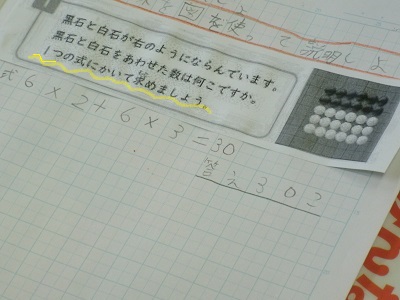 図を使って説明しよ
黒石と白石が右のようにならんでいます。
黒石と白石をあわせた数は何こですか。
1つの式にかいて求めましょう。
式 6×2+6×3=30
答え 30こ